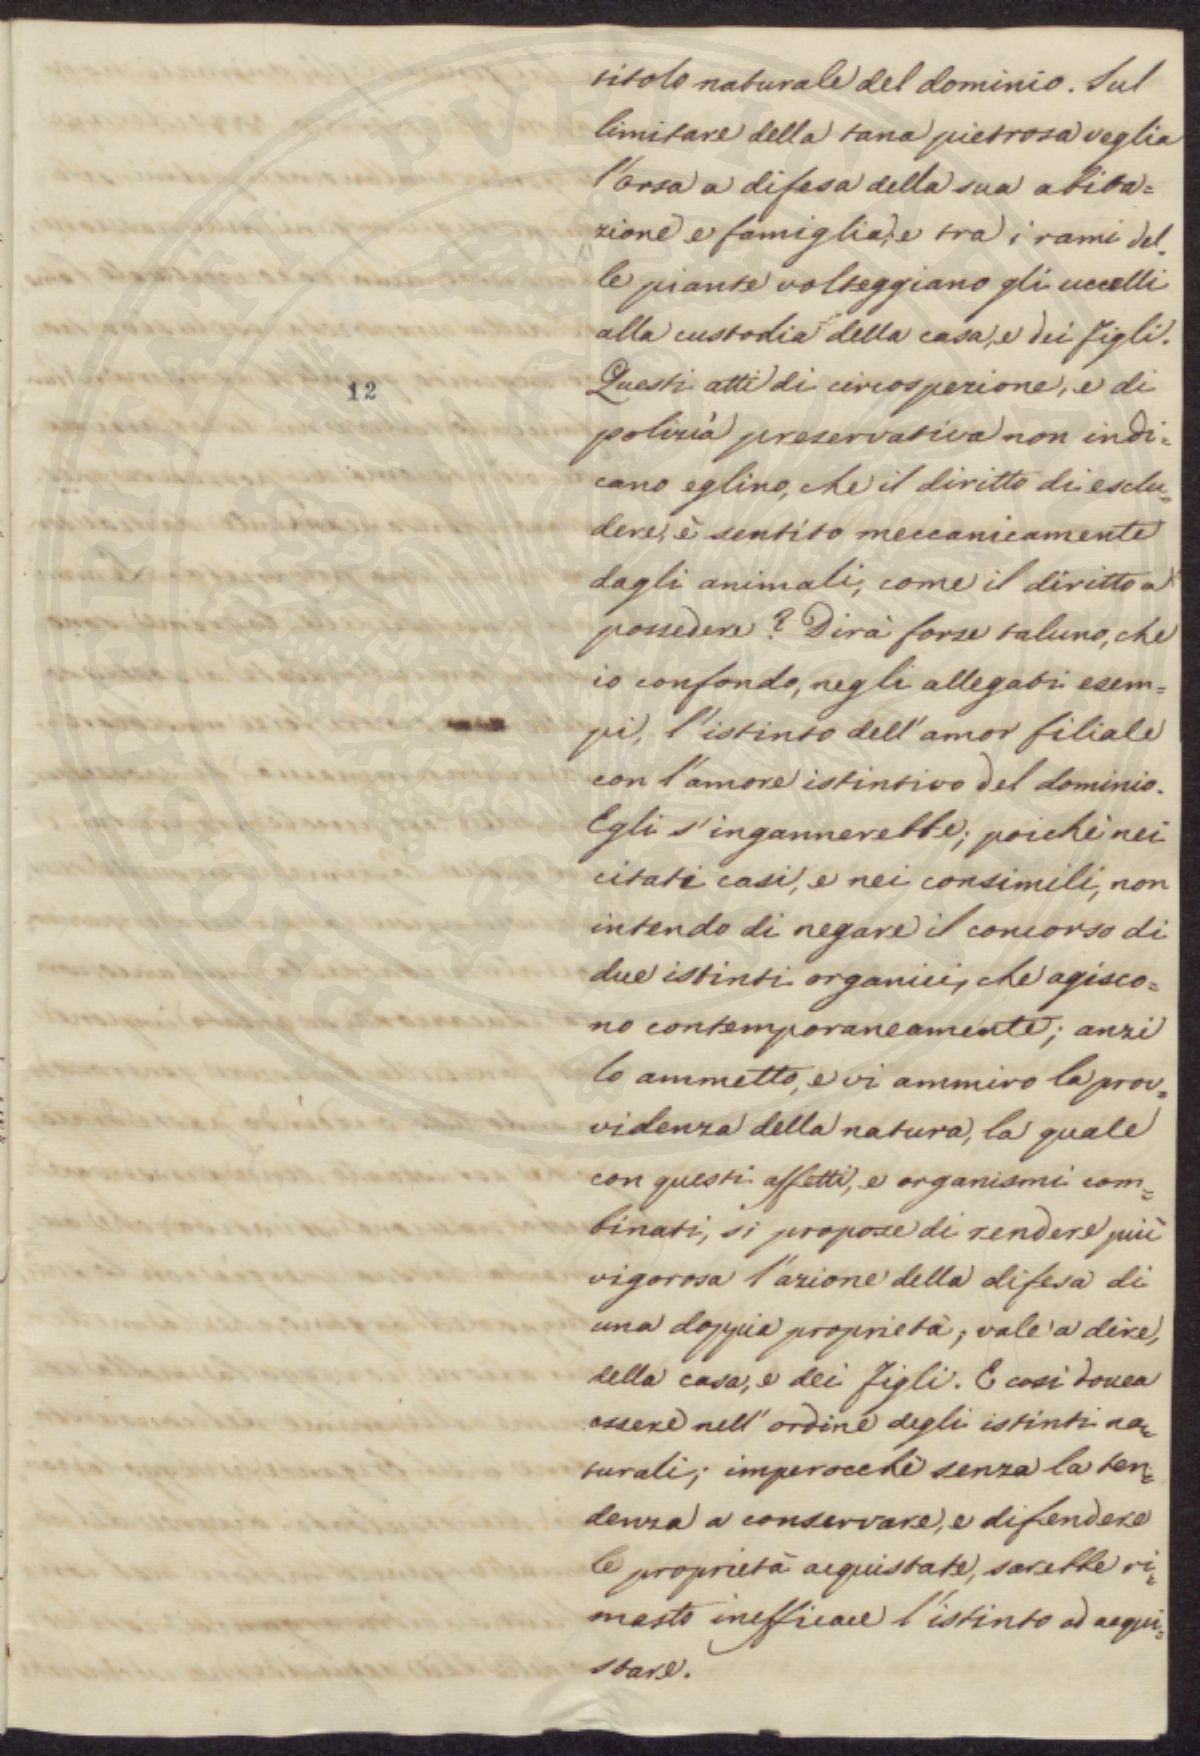 titolo naturale del dominio. Sul
limitare della tana pietrosa veglia
l'orsa a difesa della sua abita=
zione e famiglia, e tra i rami del=
le piante volteggiano gli uccelli
alla custodia della casa, e dei figli.
12
Questi atti di circospezione, e di
polizia preservativa non indi=
cano eglino, che il diritto di esclu=
dere, è sentito meccanicamente
dagli animali, come il diritto a
possedere? Dirà forse taluno, che
io confondo, negli allegati esem=
pi, l'istinto dell'amor filiale
con l'amore istintivo del dominio.
Egli s'ingannerebbe; poichè nei
citati casi, e nei consimili, non
intendo di negare il concorso di
due istinti organici, che agisco=
no contemporaneamente; anzi
lo ammetto, e vi ammiro la prov=
videnza della natura, la quale
con questi affetti, e organismi com=
binati, si propose di rendere più
vigorosa l'azione della difesa di
una doppia proprietà; vale a dire,
della casa, e dei figli. E così dovea
essere nell'ordine degli istinti na=
turali; imperocchè senza la ten=
denza a conservare, e difendere
le proprietà acquistate, sarebbe ri=
masto inefficace l'istinto ad acqui=
stare.